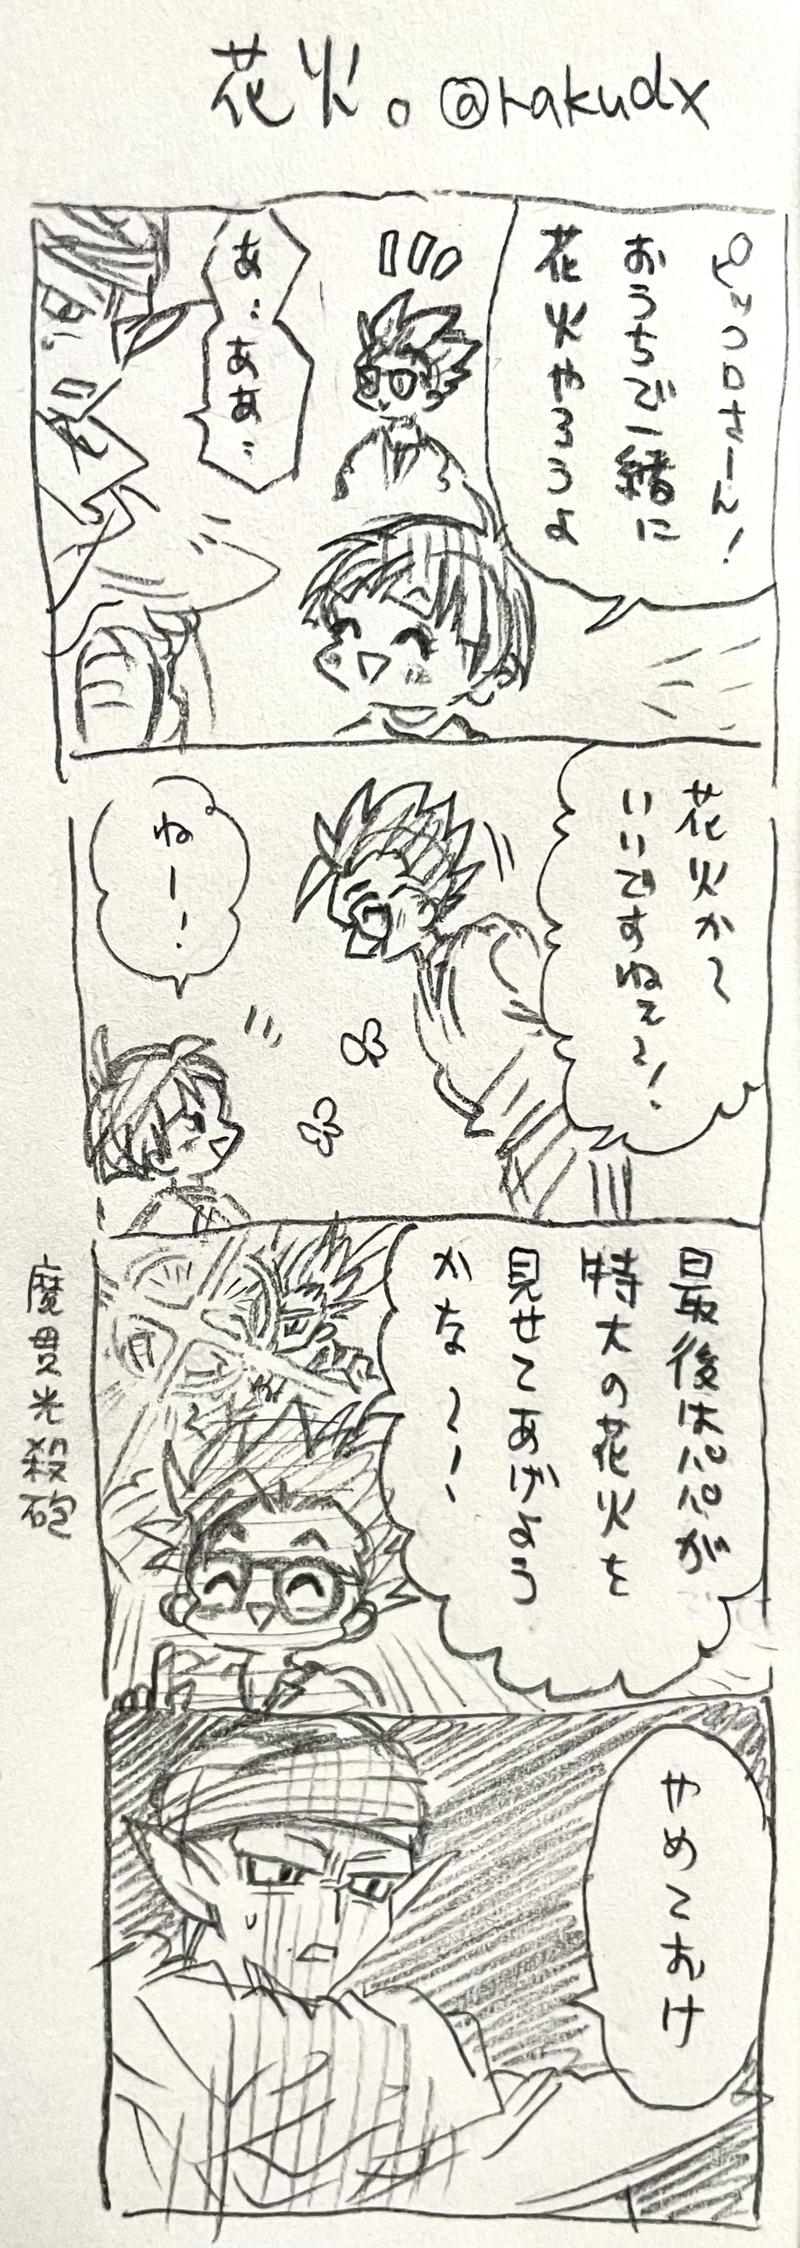 花火。@rakudx
ピッコロさーん!
おうちで一緒に
花火やろうよ
あ…ああ…
花火か〜
いいですねえ〜!
ねー!
最後はパパが
特大の花火を
見せてあげよう
かな〜!
魔貫光殺砲
やめておけ